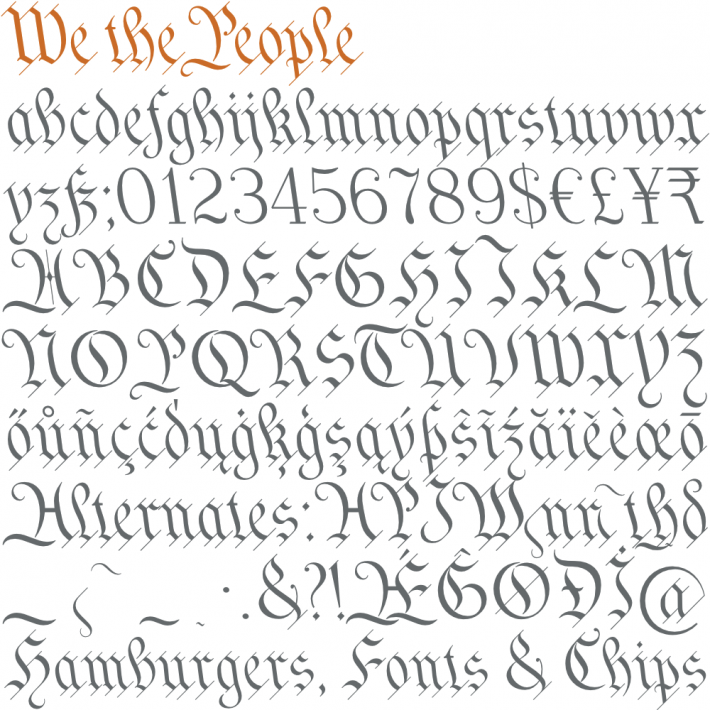 We the People
abcdefghijklmnopqrstuvwx
yzß;0123456789$€£¥₹
ABCDEFGHIJKLM
NOPQRSTUVWXYZ
őůñçćðųġķģşąýþŝīźăïěèœō
Alternates: APIWnn thd
&?!ÆĜØĐİ@
Hamburgers, Fonts & Chips